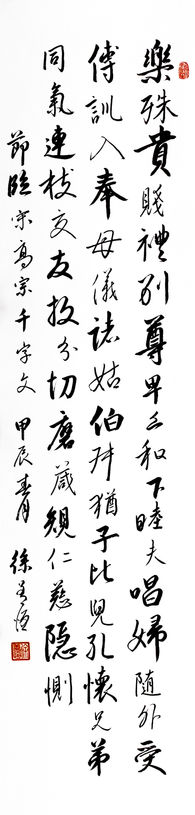 樂殊貴賤禮別尊卑上和下睦夫唱婦随外受
傅訓入奉母儀諸姑伯叔猶子比兒孔懷兄弟
同氣連枝交友投分切磨箴規仁慈隐惻
節臨宋高宗千字文 甲辰春月 徐